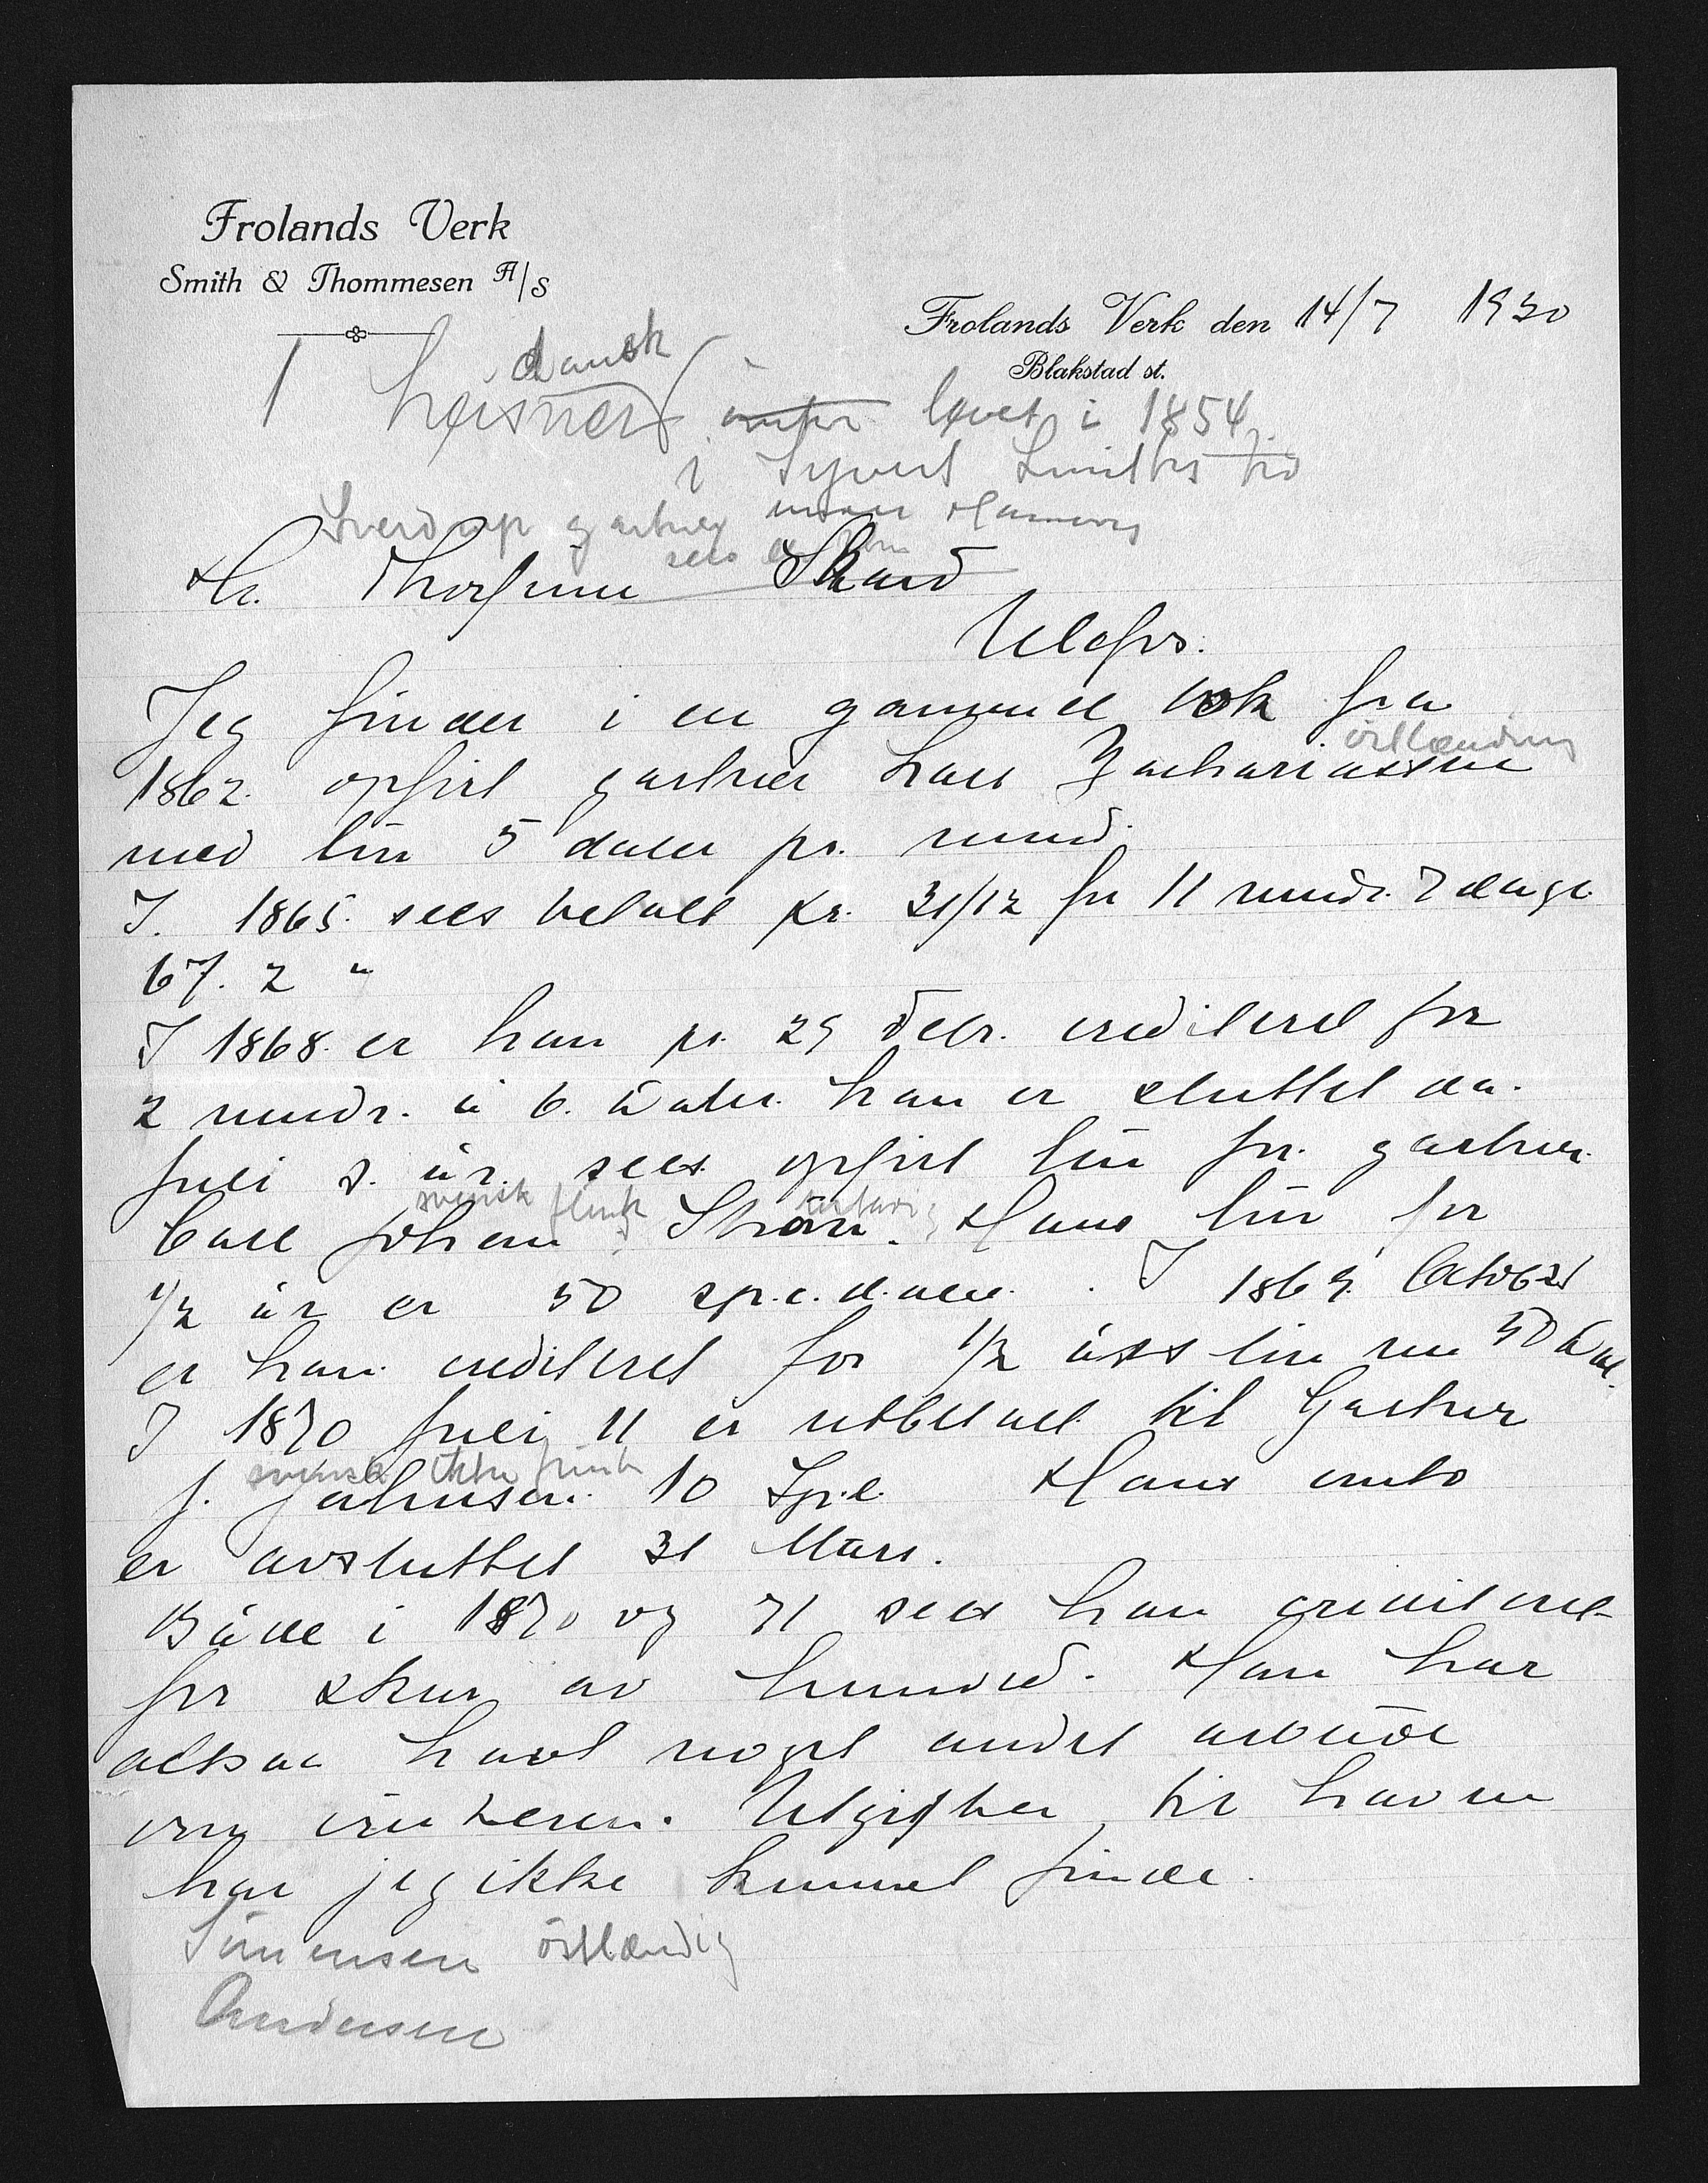 Frolands Verk
Smith & Thommesen A/S
Frolands Verk den 14/7 1930
Blakstad st.
dansk
1 levet i 1854
i Syvert Smiths tid
Sverdrup gartner
Hr. Thorfinn Skard
Ulefos.
Jeg finder i en gammel bok fra
östlænding
1862. opført gartner Lars Zachariassen
med løn 5 daler pr. mnd.
I. 1865 sees betalt pr. 31/12 for 11 mndr. 7 dage
67. 2 "
I 1868 er han pr. 29 Febr. crediteret for
2 mndr. á 6. daler. han er sluttet da.
Juli s. år. sees opført løn for gartner.
svensk flink
Carl Johan Hans løn for
1/2 år er 50 spec.daler. I 1869 October
er han crediteret for 1/2 års løn med 50 dal.
I 1870 Juli 11 er utbetalt til Gartner
svensk ikke flink
J. Johnsen. 10 Spd. Hans conto
er avsluttet 31 Mars.
Både i 1870 og 71 sees han crediteret
for skur av tømmer. Han har
altsaa havt noget andet arbeide
om vinteren. Utgifter til haven
har jeg ikke kunnet finde.
Sörensen östlænding
Andersen